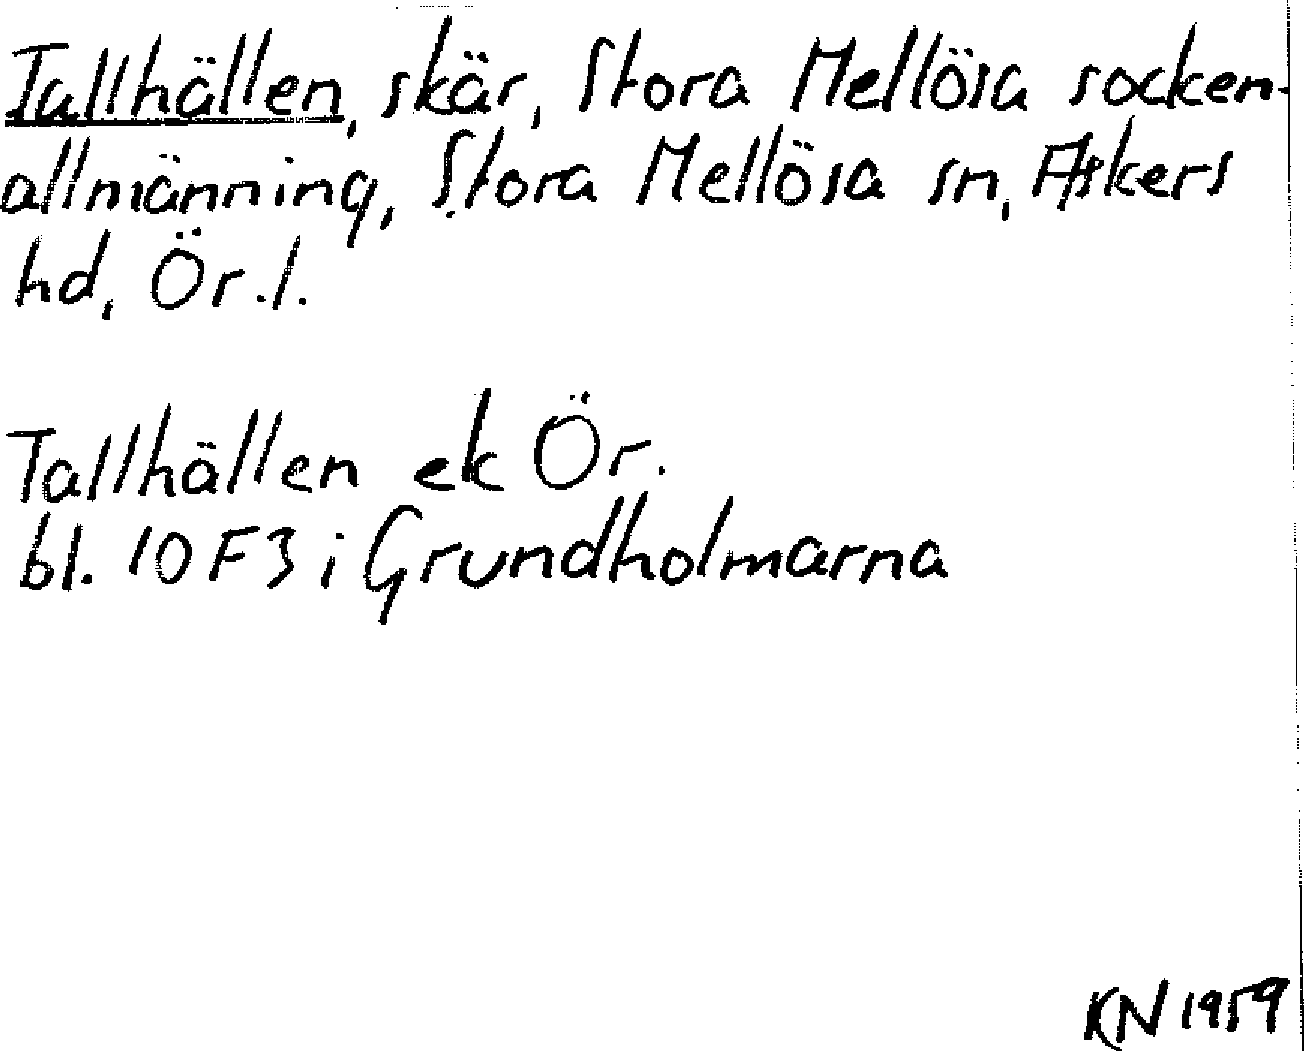 Tallhällen, skär, Stora Mellösa socken-
allmänning, Stora Mellösa sn, Askers
hd, Ör.l.
Tallhällen ek Ör.
bl. 10F3 i Grundholmarna
KN 1959